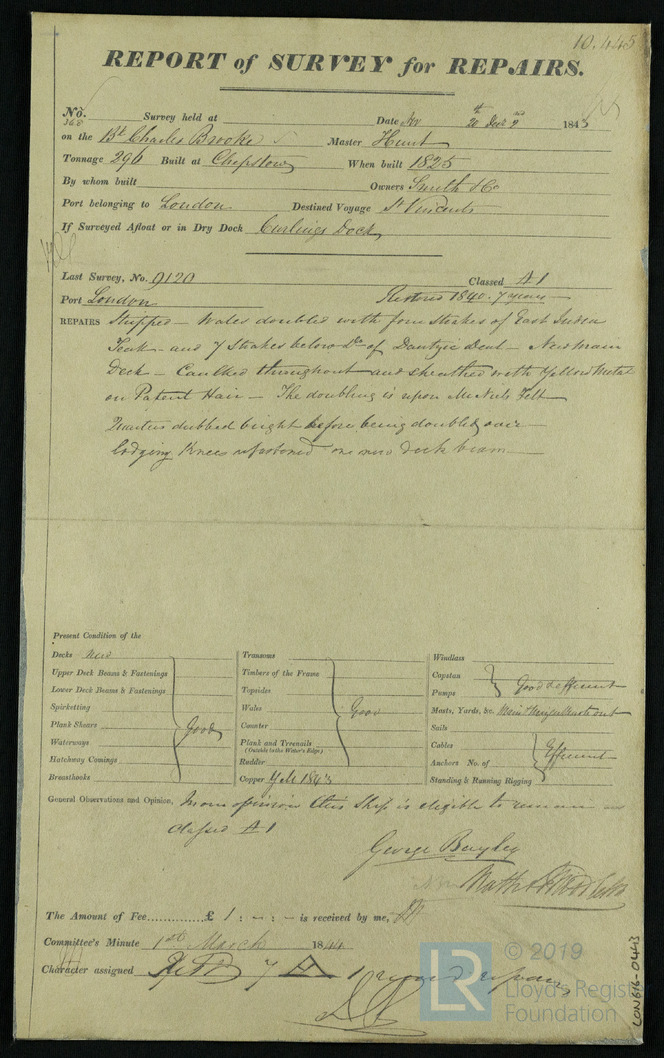 10.445
REPORT of SURVEY for REPAIRS.
No. 368 Survey held at Date 20 Dec 1843
on the Bk Charles Brooke Master Hunt
Tonnage 296 Built at Chepstow When built 1825
By whom built Owners Smith & Co
Port belonging to London Destined Voyage St Vincents
If Surveyed Afloat or in Dry Dock Curlings Dock
Last Survey, No. 9120 Classed A1
Port London Restored 1840. 7 years
REPAIRS Stripped – Wales doubled with four strakes of East India
Teak – and 7 strakes below Do of Dantzic Deal – New main
Deck – Caulked throughout and sheathed with Yellow Metal
on Patent Hair – The doubling is upon Felt
dubbed bright before being doubled over
lodging Knees refastened one new deck beam
Present Condition of the
Decks New
Upper Deck Beams & Fastenings
Lower Deck Beams & Fastenings
Spirketting
Plank Shears Good
Waterways
Hatchway Comings
Breasthooks
Transoms
Timbers of the Frame
Topsides
Wales Good
Counter
Plank and Treenails
(Outside to the Water's Edge)
Rudder
Copper Y M 1843
Windlass
Capstan Good & efficient
Pumps
Masts, Yards, &c.
Sails
Cables Efficient
Anchors No. of
Standing & Running Rigging
General Observations and Opinion, In our opinion this Ship is eligible to remain as
classed A1
George Bayley
The Amount of Fee............£ 1 : – : – is received by me,
Committee's Minute 1st March 1844
Character assigned
© 2019
LR
Lloyd's Register
Foundation
LON616-0443